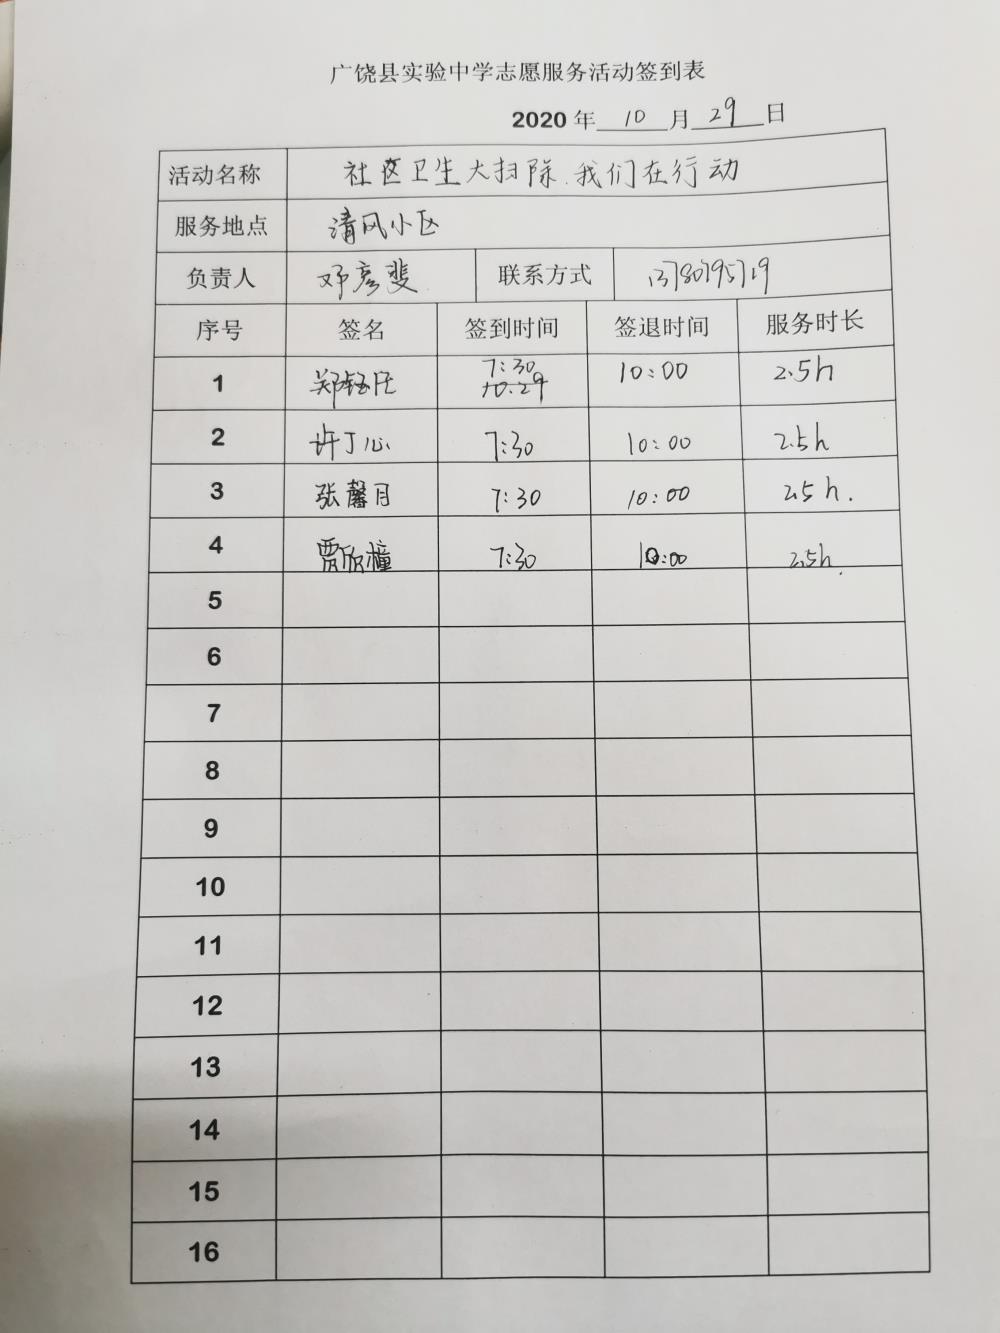 广饶县实验中学志愿服务活动签到表
2020 年 10 月 29 日
活动名称 社区卫生大扫除.我们在行动
服务地点 清风小区
负责人 邓彦斐 联系方式 13780795719
序号 签名 签到时间 签退时间 服务时长
1 郑钰 7:30 10.29 10:00 2.5h
2 许丁心 7:30 10:00 2.5h
3 张馨月 7:30 10:00 2.5h.
4 贾欣橦 7:30 10:00 2.5h.
5
6
7
8
9
10
11
12
13
14
15
16